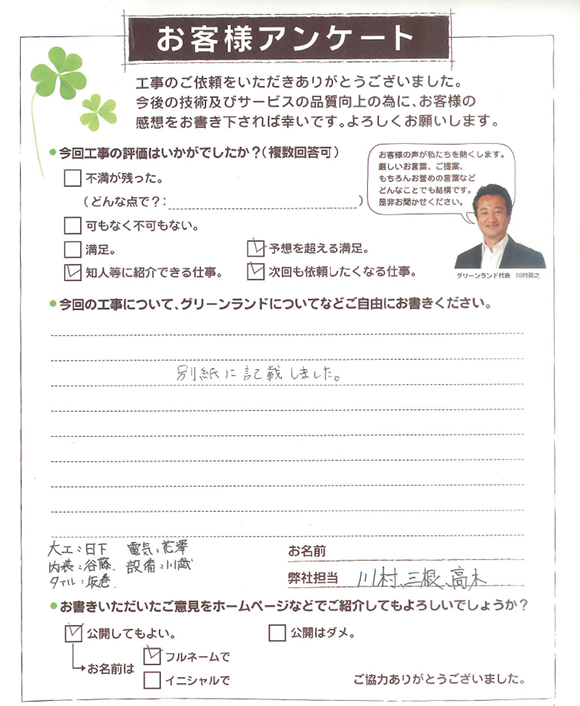 お客様アンケート
工事のご依頼をいただきありがとうございました。
今後の技術及びサービスの品質向上の為に、お客様の
感想をお書き下されば幸いです。よろしくお願いします。
●今回工事の評価はいかがでしたか?(複数回答可)
不満が残った。
(どんな点で?: )
可もなく不可もない。
満足。
予想を超える満足。
知人等に紹介できる仕事。
次回も依頼したくなる仕事。
お客様の声が私たちを熱くします。
厳しいお言葉、ご提案、
もちろんお誉めの言葉など
どんなことでも結構です。
是非お聞かせください。
グリーンランド代表 川村英之
●今回の工事について、グリーンランドについてなどご自由にお書きください。
別紙に記載しました。
大工:日下 電気:花澤
内装:谷藤 設備:川蔵
タイル:坂巻
お名前
弊社担当 川村、三根、高木
●お書きいただいたご意見をホームページなどでご紹介してもよろしいでしょうか?
公開してもよい。
公開はダメ。
お名前は
フルネームで
イニシャルで
ご協力ありがとうございました。